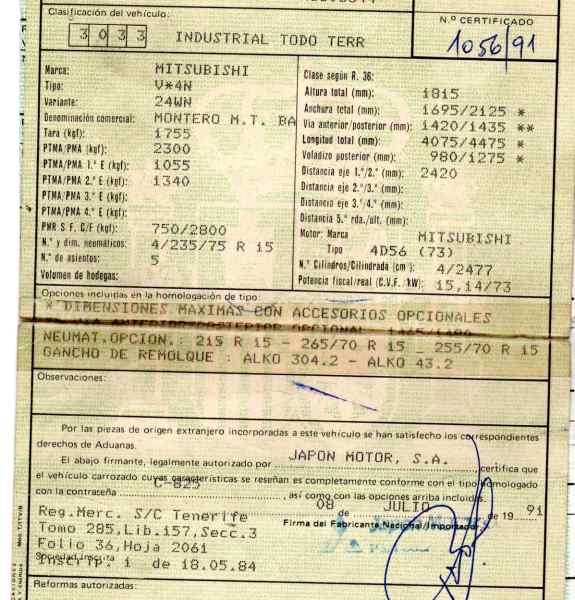 Clasificación del vehículo:
Nº CERTIFICADO
3 0 3 3 INDUSTRIAL TODO TERR
1056/91
Marca: MITSUBISHI
Tipo: V*4N
Variante: 24WN
Denominación comercial: MONTERO M.T. BA
Tara (kgf): 1755
PTMA/PMA (kgf): 2300
PTMA/PMA 1.º E (kgf): 1055
PTMA/PMA 2.º E (kgf): 1340
PTMA/PMA 3.º E (kgf):
PTMA/PMA 4.º E (kgf):
PMR S.F. C/F (kgf): 750/2800
N.º y dim. neumáticos: 4/235/75 R 15
N.º de asientos: 5
Volumen de bodegas:
Clase según R. 36:
Altura total (mm): 1815
Anchura total (mm): 1695/2125 *
Via anterior/posterior (mm): 1420/1435 **
Longitud total (mm): 4075/4475 *
Voladizo posterior (mm): 980/1275 *
Distancia eje 1.º/2.º (mm): 2420
Distancia eje 2.º/3.º (mm):
Distancia eje 3.º/4.º (mm):
Distancia 5.ª rda./últ. (mm):
Motor: Marca MITSUBISHI
Tipo 4D56 (73)
N.º Cilindros/Cilindrada (cm³): 4/2477
Potencia fiscal/real (C.V.F. /kW): 15,14/73
Opciones incluidas en la homologación de tipo:
* DIMENSIONES MAXIMAS CON ACCESORIOS OPCIONALES
VIA ANTERIOR/POSTERIOR OPCIONAL 1465/1480
NEUMAT.OPCION.: 215 R 15 - 265/70 R 15 - 255/70 R 15
GANCHO DE REMOLQUE : ALKO 304.2 - ALKO 43.2
Observaciones:
Por las piezas de origen extranjero incorporadas a este vehículo se han satisfecho los correspondientes
derechos de Aduanas.
El abajo firmante, legalmente autorizado por JAPON MOTOR, S.A. certifica que
el vehículo carrozado cuyas características se reseñan es completamente conforme con el tipo homologado
con la contraseña C-825, así como con las opciones arriba incluidas.
08 de JULIO de 19 91
Firma del Fabricante Nacional/Importador
Reg.Merc. S/C Tenerife
Tomo 285,Lib.157,Secc.3
Folio 36,Hoja 2061
Sociedad inscrita
Inscrip. 1 de 18.05.84
Reformas autorizadas: